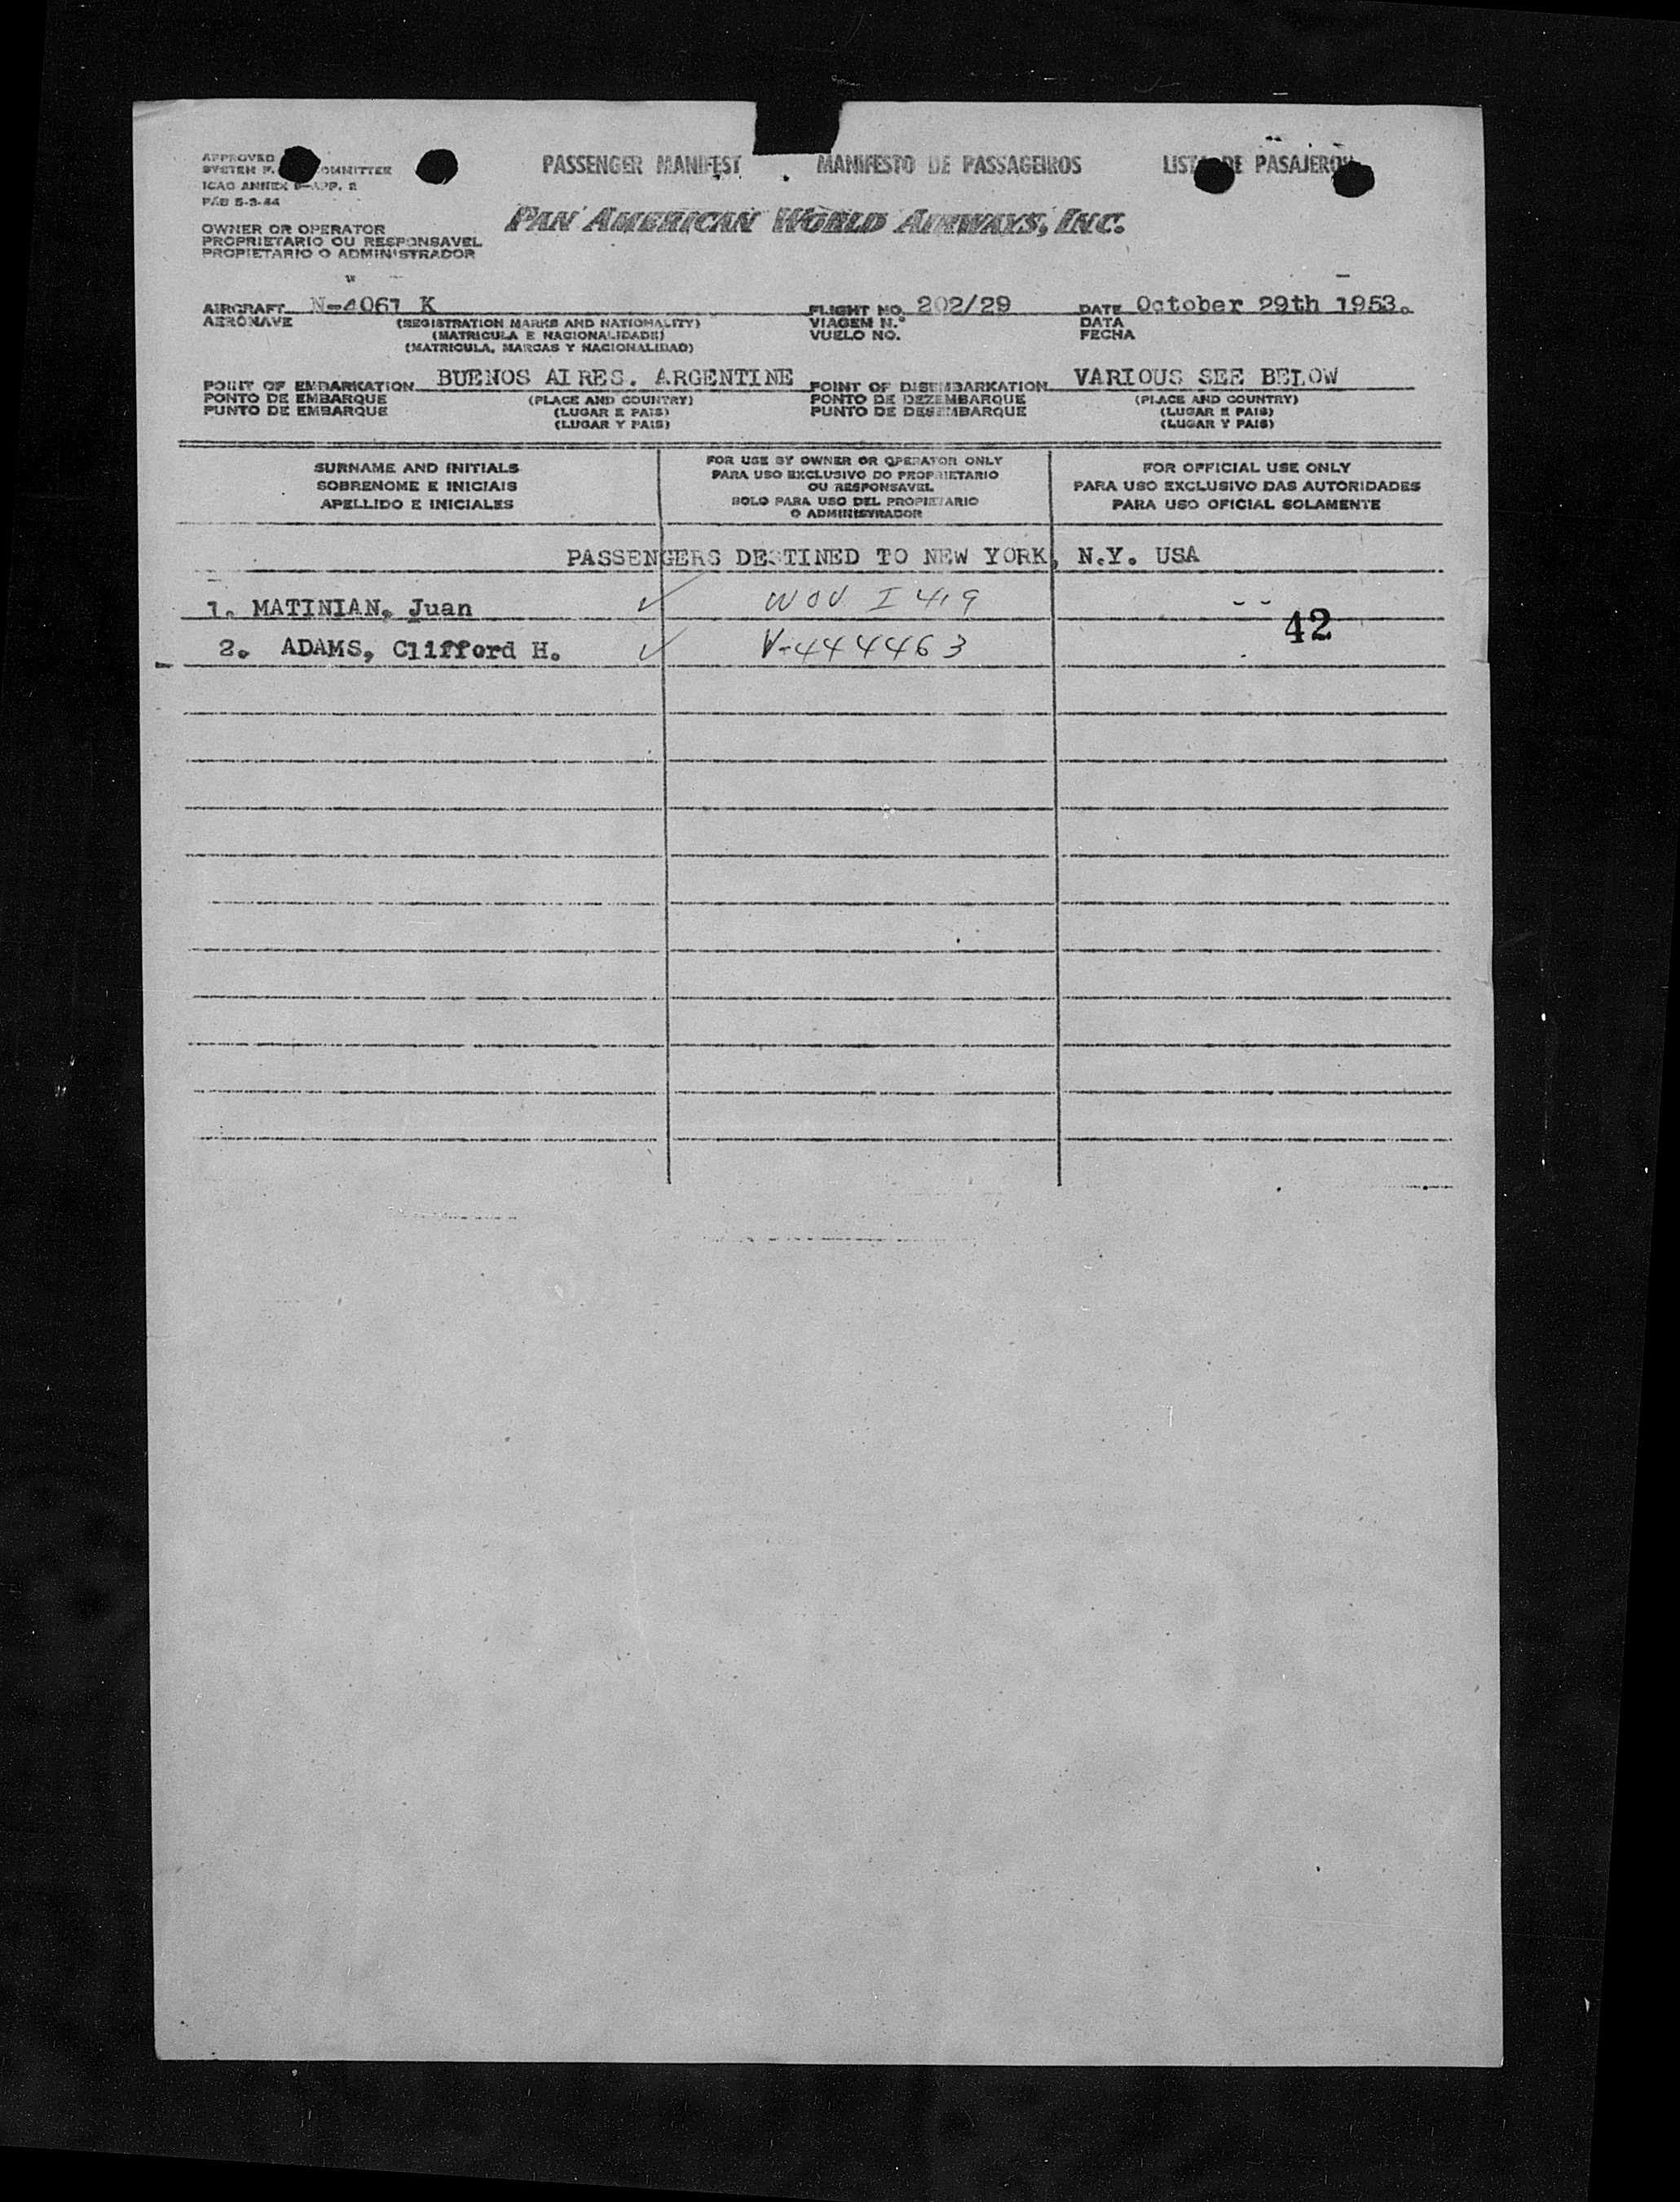 PASSENGER MANIFEST MANIFESTO DE PASSAGEIROS LISTA DE PASAJEROS
APPROVED
SYSTEM F. COMMITTEE
ICAO ANNEX 9—APP. 2
PAB 5-3-44
PAN AMERICAN WORLD AIRWAYS, INC.
OWNER OR OPERATOR
PROPRIETARIO OU RESPONSAVEL
PROPIETARIO O ADMINISTRADOR
AIRCRAFT N-4061 K FLIGHT NO. 202/29 DATE October 29th 1953.
AERONAVE (REGISTRATION MARKS AND NATIONALITY) VIAGEM N.° DATA
(MATRICULA E NACIONALIDADE) VUELO NO. FECHA
(MATRICULA, MARCAS Y NACIONALIDAD)
POINT OF EMBARKATION BUENOS AIRES. ARGENTINE POINT OF DISEMBARKATION VARIOUS SEE BELOW
PONTO DE EMBARQUE (PLACE AND COUNTRY) PONTO DE DEZEMBARQUE (PLACE AND COUNTRY)
PUNTO DE EMBARQUE (LUGAR E PAIS) PUNTO DE DESEMBARQUE (LUGAR E PAIS)
(LUGAR Y PAIS) (LUGAR Y PAIS)
SURNAME AND INITIALS
SOBRENOME E INICIAIS
APELLIDO E INICIALES
FOR USE BY OWNER OR OPERATOR ONLY
PARA USO EXCLUSIVO DO PROPRIETARIO
OU RESPONSAVEL
SOLO PARA USO DEL PROPIETARIO
O ADMINISTRADOR
FOR OFFICIAL USE ONLY
PARA USO EXCLUSIVO DAS AUTORIDADES
PARA USO OFICIAL SOLAMENTE
PASSENGERS DESTINED TO NEW YORK, N.Y. USA
1. MATINIAN, Juan ✓ NOV I 419
42
2. ADAMS, Clifford H. ✓ V-444463